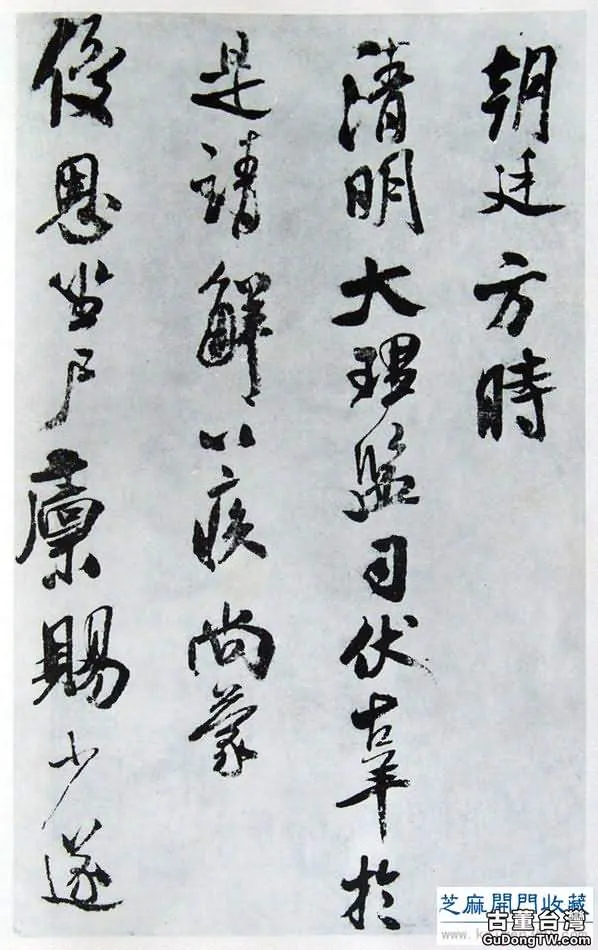 朝廷方時
清明大理監司伏辜於
是請解以疾尚蒙
優恩坐尸廩賜少遂
芝麻開門收藏
古董台灣
GuDongTW.com